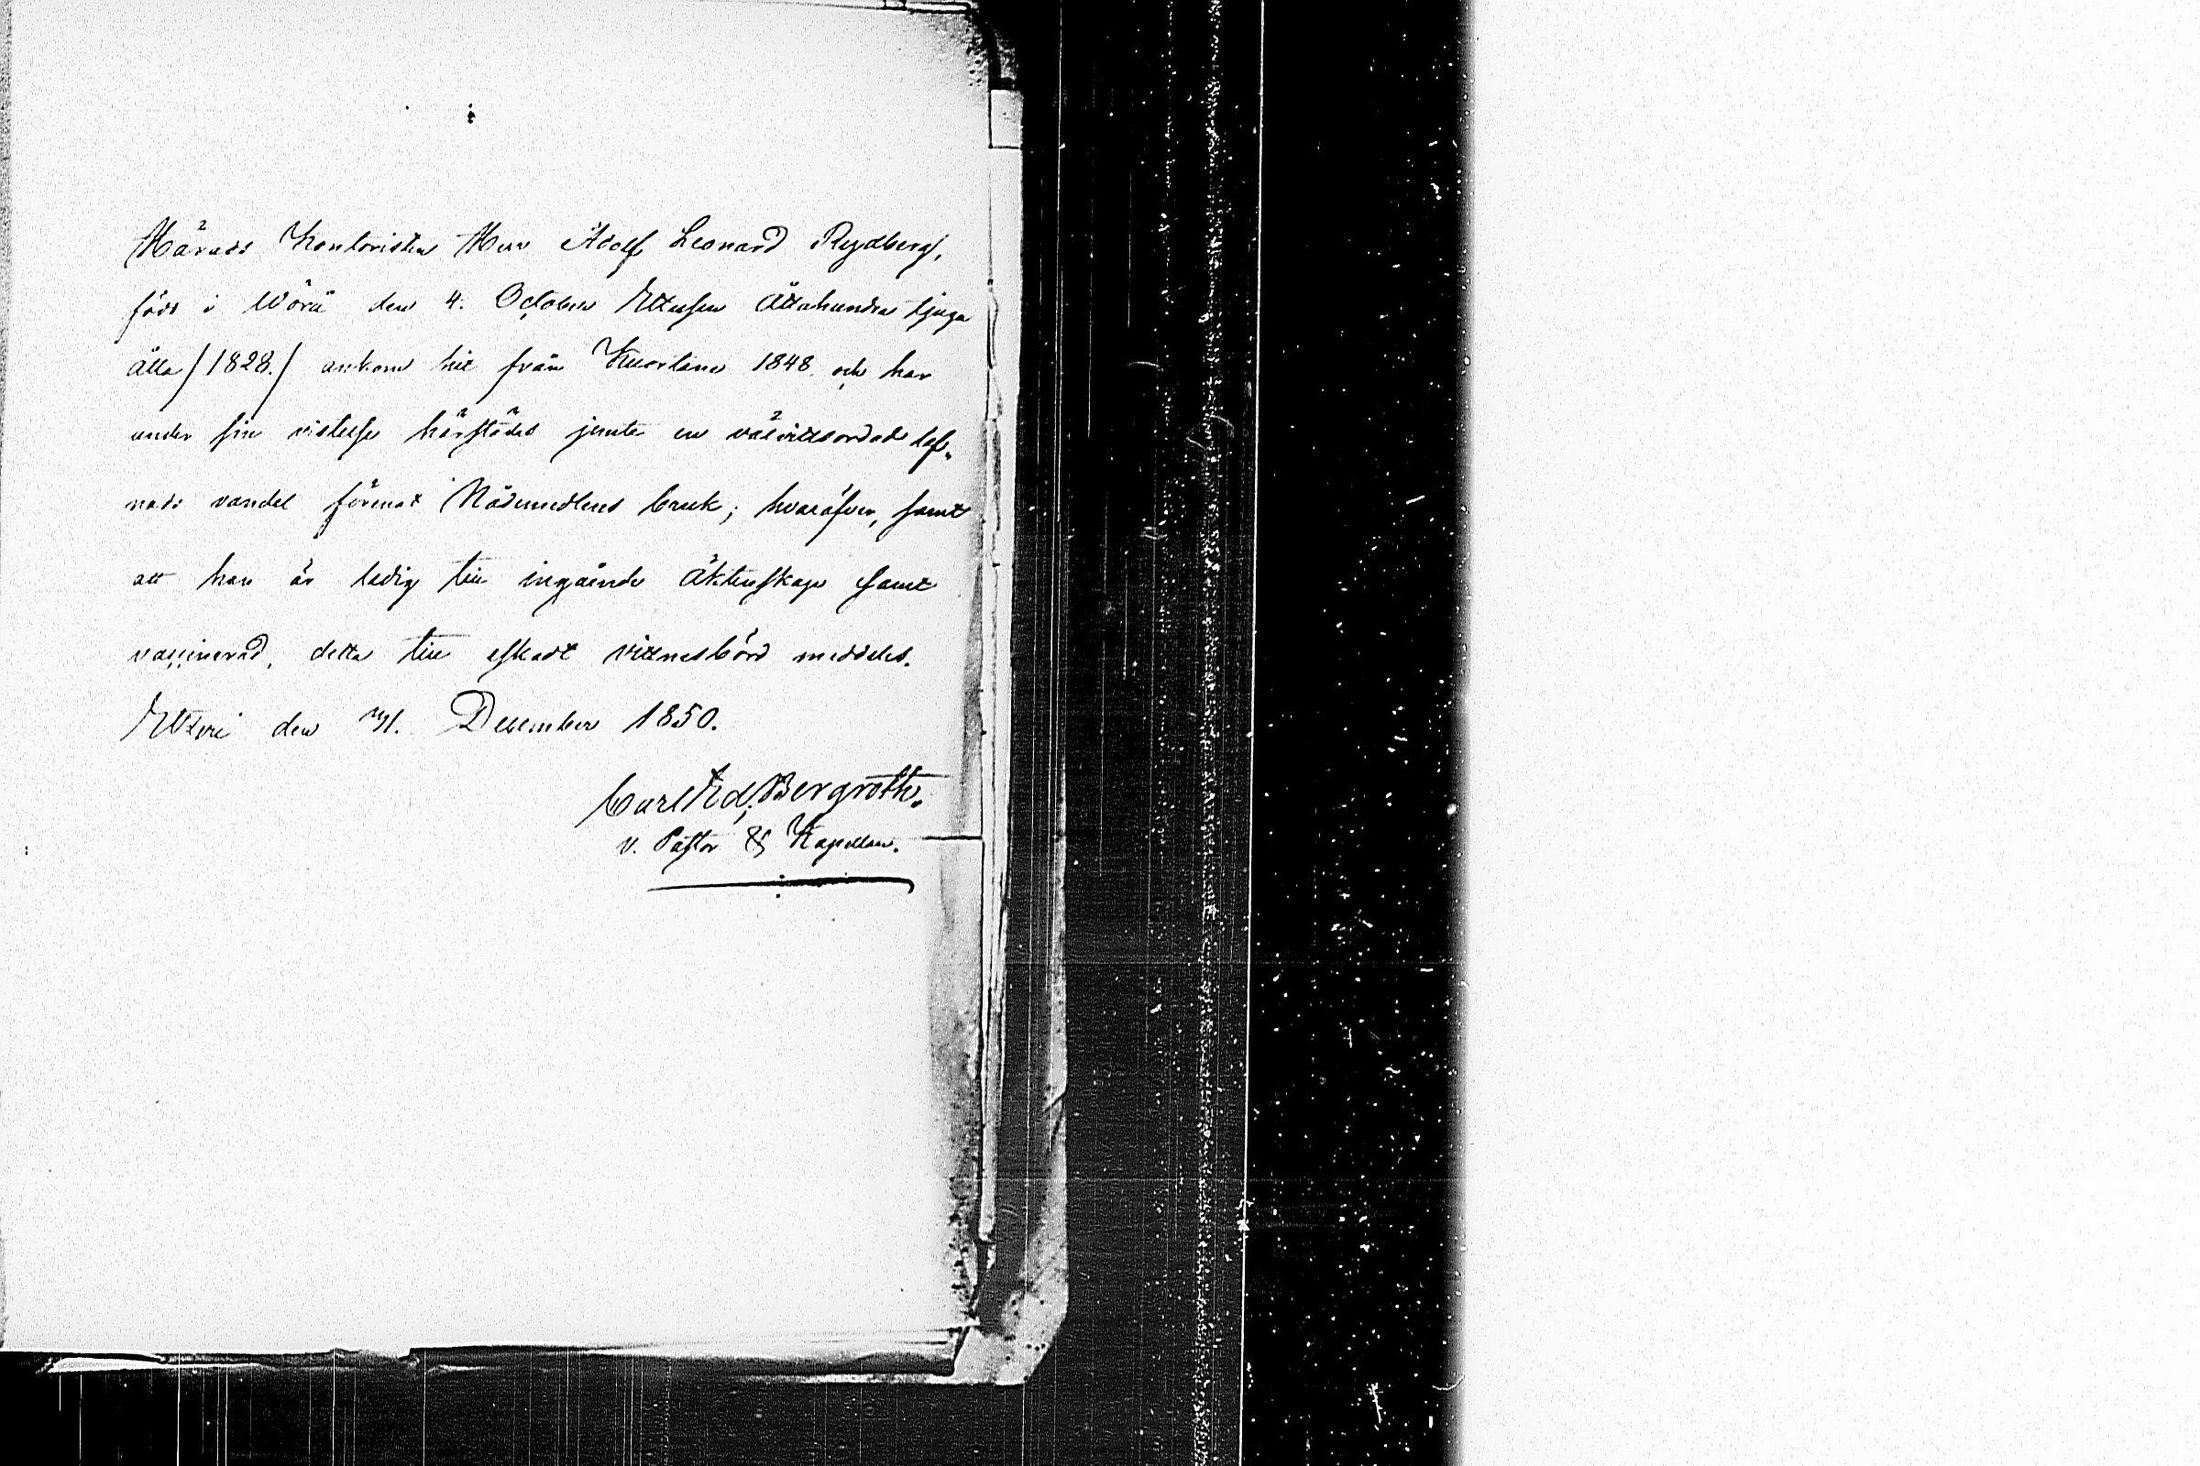 Härads Kontoristen Herr Adolf Leonard Rydberg,
född i Wörå den 4. October Ettusen Åttahundra tjugu
åtta /1828./ ankom hit från Kuortane 1848. och har
under sin vistelse härstädes jemte en välvittsordad lef„
nads vandel förenat Nådemedlens bruk; hvaröfver, samt
att han är ledig till ingående äktenskap samt
vaccinerad, detta till äskadt vittnesbörd meddelas.
Etseri den 31. December 1850.
Carl Ed, Bergroth.
v. Pastor & Kapellan.